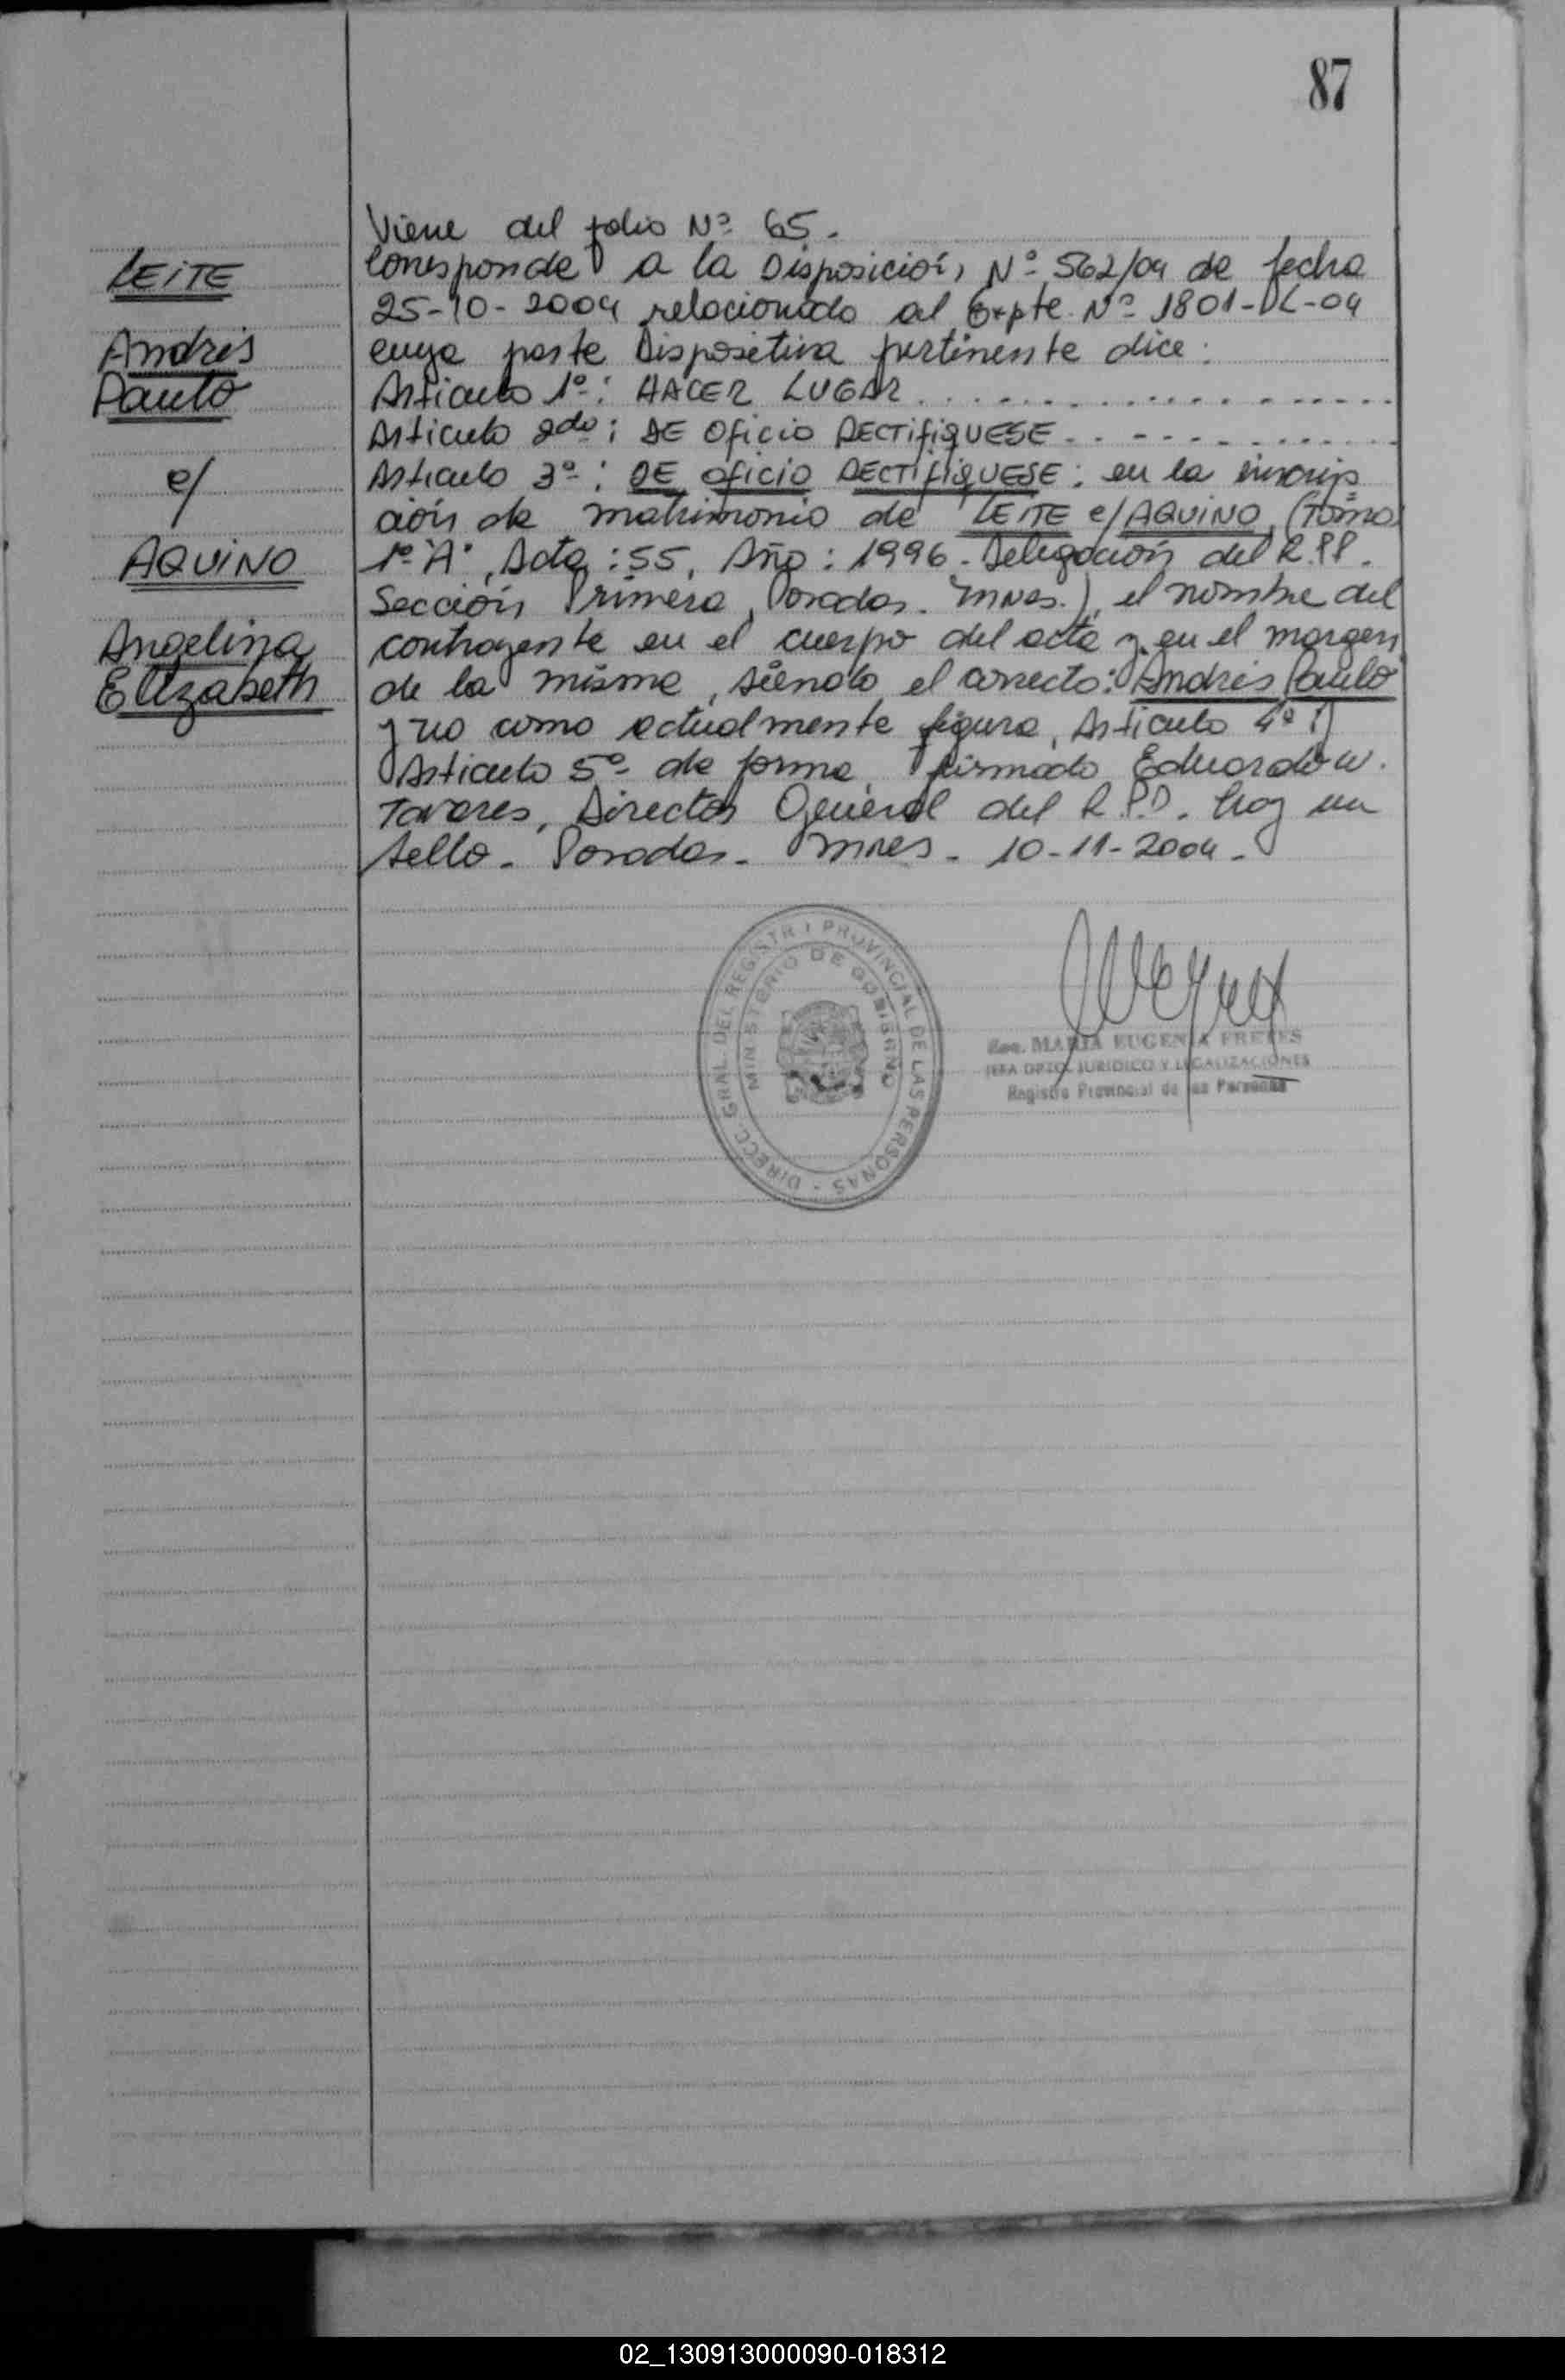 87
LEITE
Andrés
Paulo
c/
AQUINO
Angelina
Elizabeth
Viene del folio Nº 65.
Corresponde a la Disposición Nº 562/04 de fecha
25-10-2004 relacionado al Expte. Nº 1801-DL-04
cuya parte Dispositiva pertinente dice:
Articulo 1º: HACER LUGAR
Articulo 2do: DE Oficio RECTifiQUESE
Articulo 3º: DE oficio RECTifiQUESE: en la inscrip
ción de matrimonio de LEITE c/ AQUINO, (Tomo
1º "A", Acta: 55, Año: 1996 - Delegación del R.PP.
Sección Primera, Posadas. Mnes.), el nombre del
contrayente en el cuerpo del acta y en el margen
de la misma, siendo el correcto: "Andrés Paulo"
y no como actualmente figura, Articulo 4º
Articulo 5º de forma firmado Eduardo W.
Tavares, Director General del R.P.P. hay un
sello. Posadas. Mnes. 10-11-2004.
DIRECC. GRAL. DEL REGISTR PROVINCIAL DE LAS PERSONAS -
MINISTERIO DE GOBIERNO
MARIA EUGENIA FRETES
JEFA DPTO. JURIDICO Y LEGALIZACIONES
Registro Provincial de las Personas
02_130913000090-018312